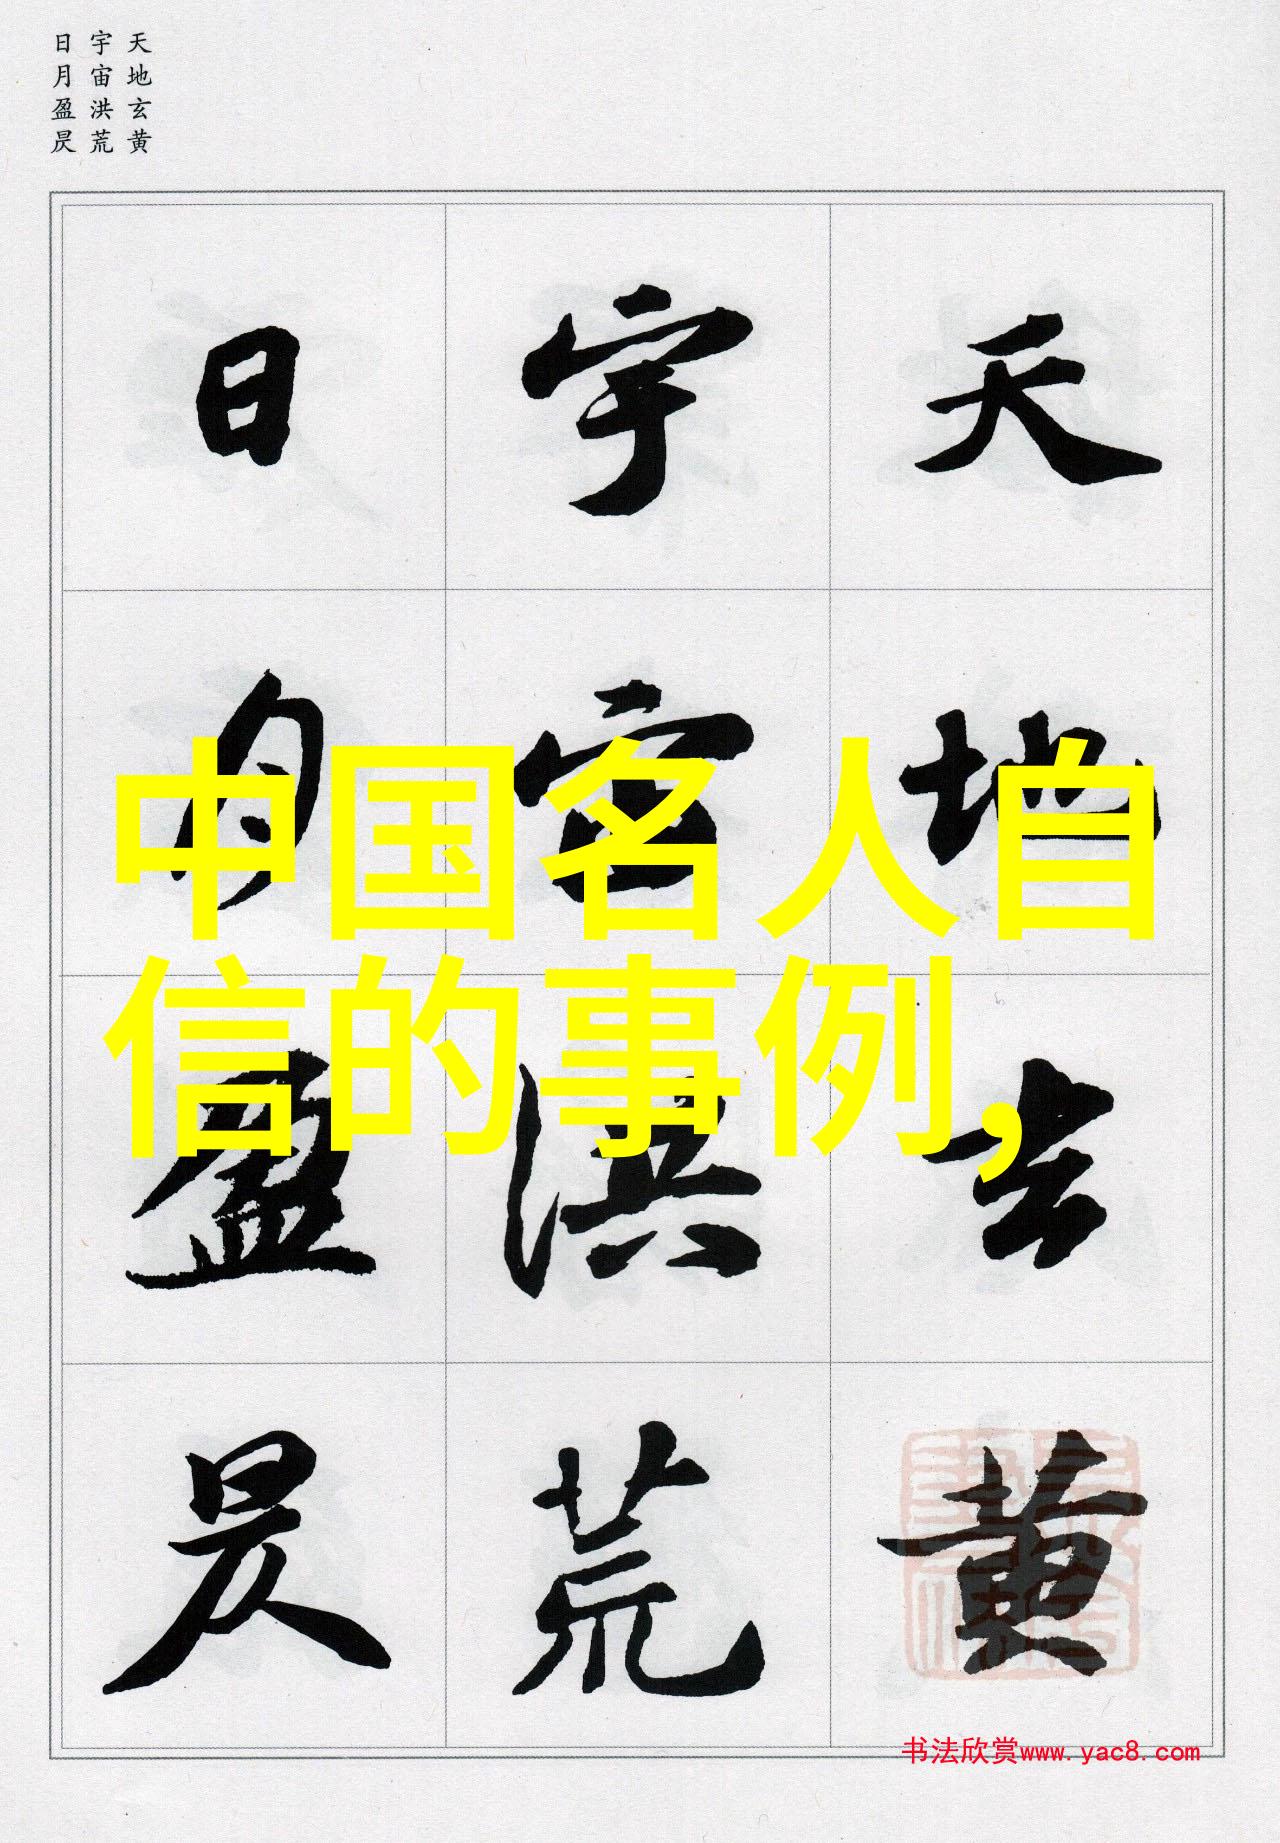 天地玄黄
宇宙洪荒
日月盈昃
天地玄黄
宇宙洪荒
日月盈昃
中国名人自
信的事例,
书法欣赏www.yac8.com